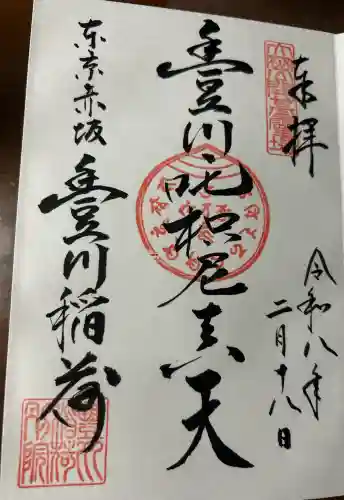 奉拝
令和八年
二月十八日
豊川吒枳尼真天
東京赤坂
豊川稲荷